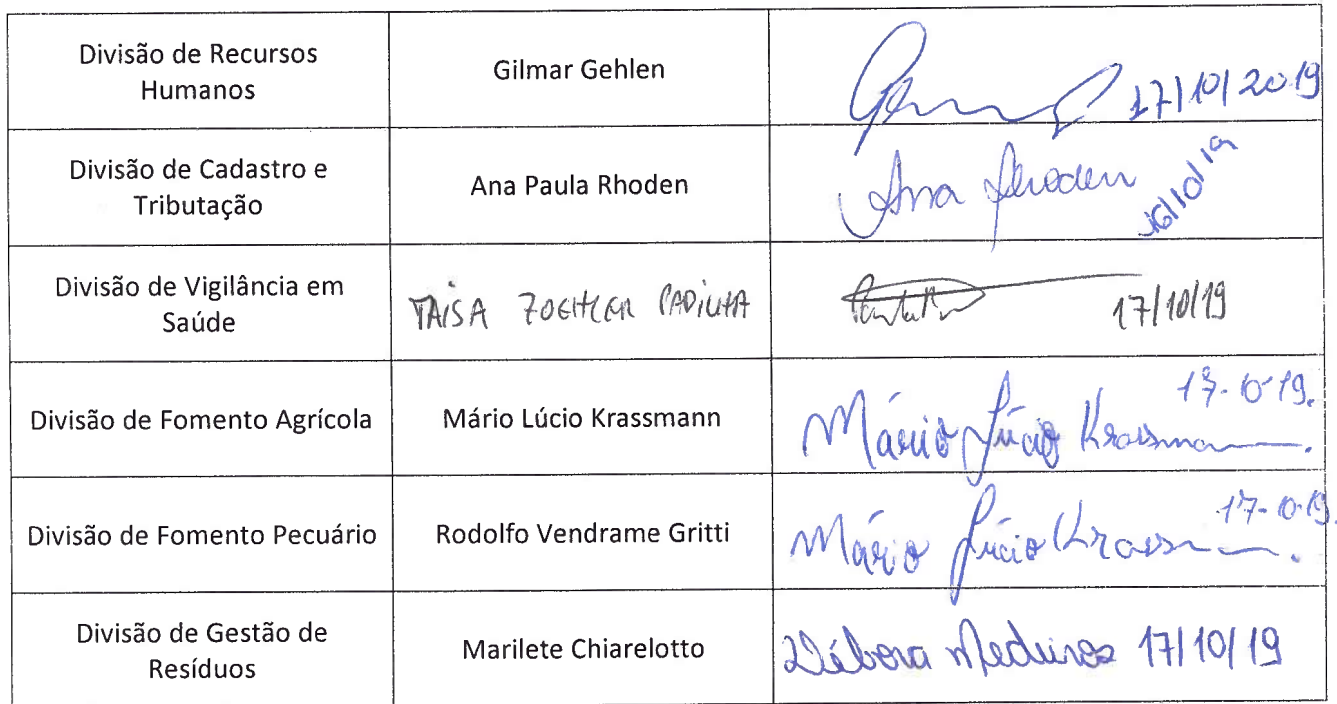 Divisão de Recursos
Humanos
Gilmar Gehlen
17/10/2019
Divisão de Cadastro e
Tributação
Ana Paula Rhoden
Ana Rhoden
16/10/19
Divisão de Vigilância em
Saúde
TAISA ZOEHLER PADILHA
17/10/19
Divisão de Fomento Agrícola
Mário Lúcio Krassmann
17-10-19.
Mário Lúcio Krassmann.
Divisão de Fomento Pecuário
Rodolfo Vendrame Gritti
17-10-19.
Mário Lúcio Krassmann.
Divisão de Gestão de
Resíduos
Marilete Chiarelotto
Débora Medeiros 17/10/19